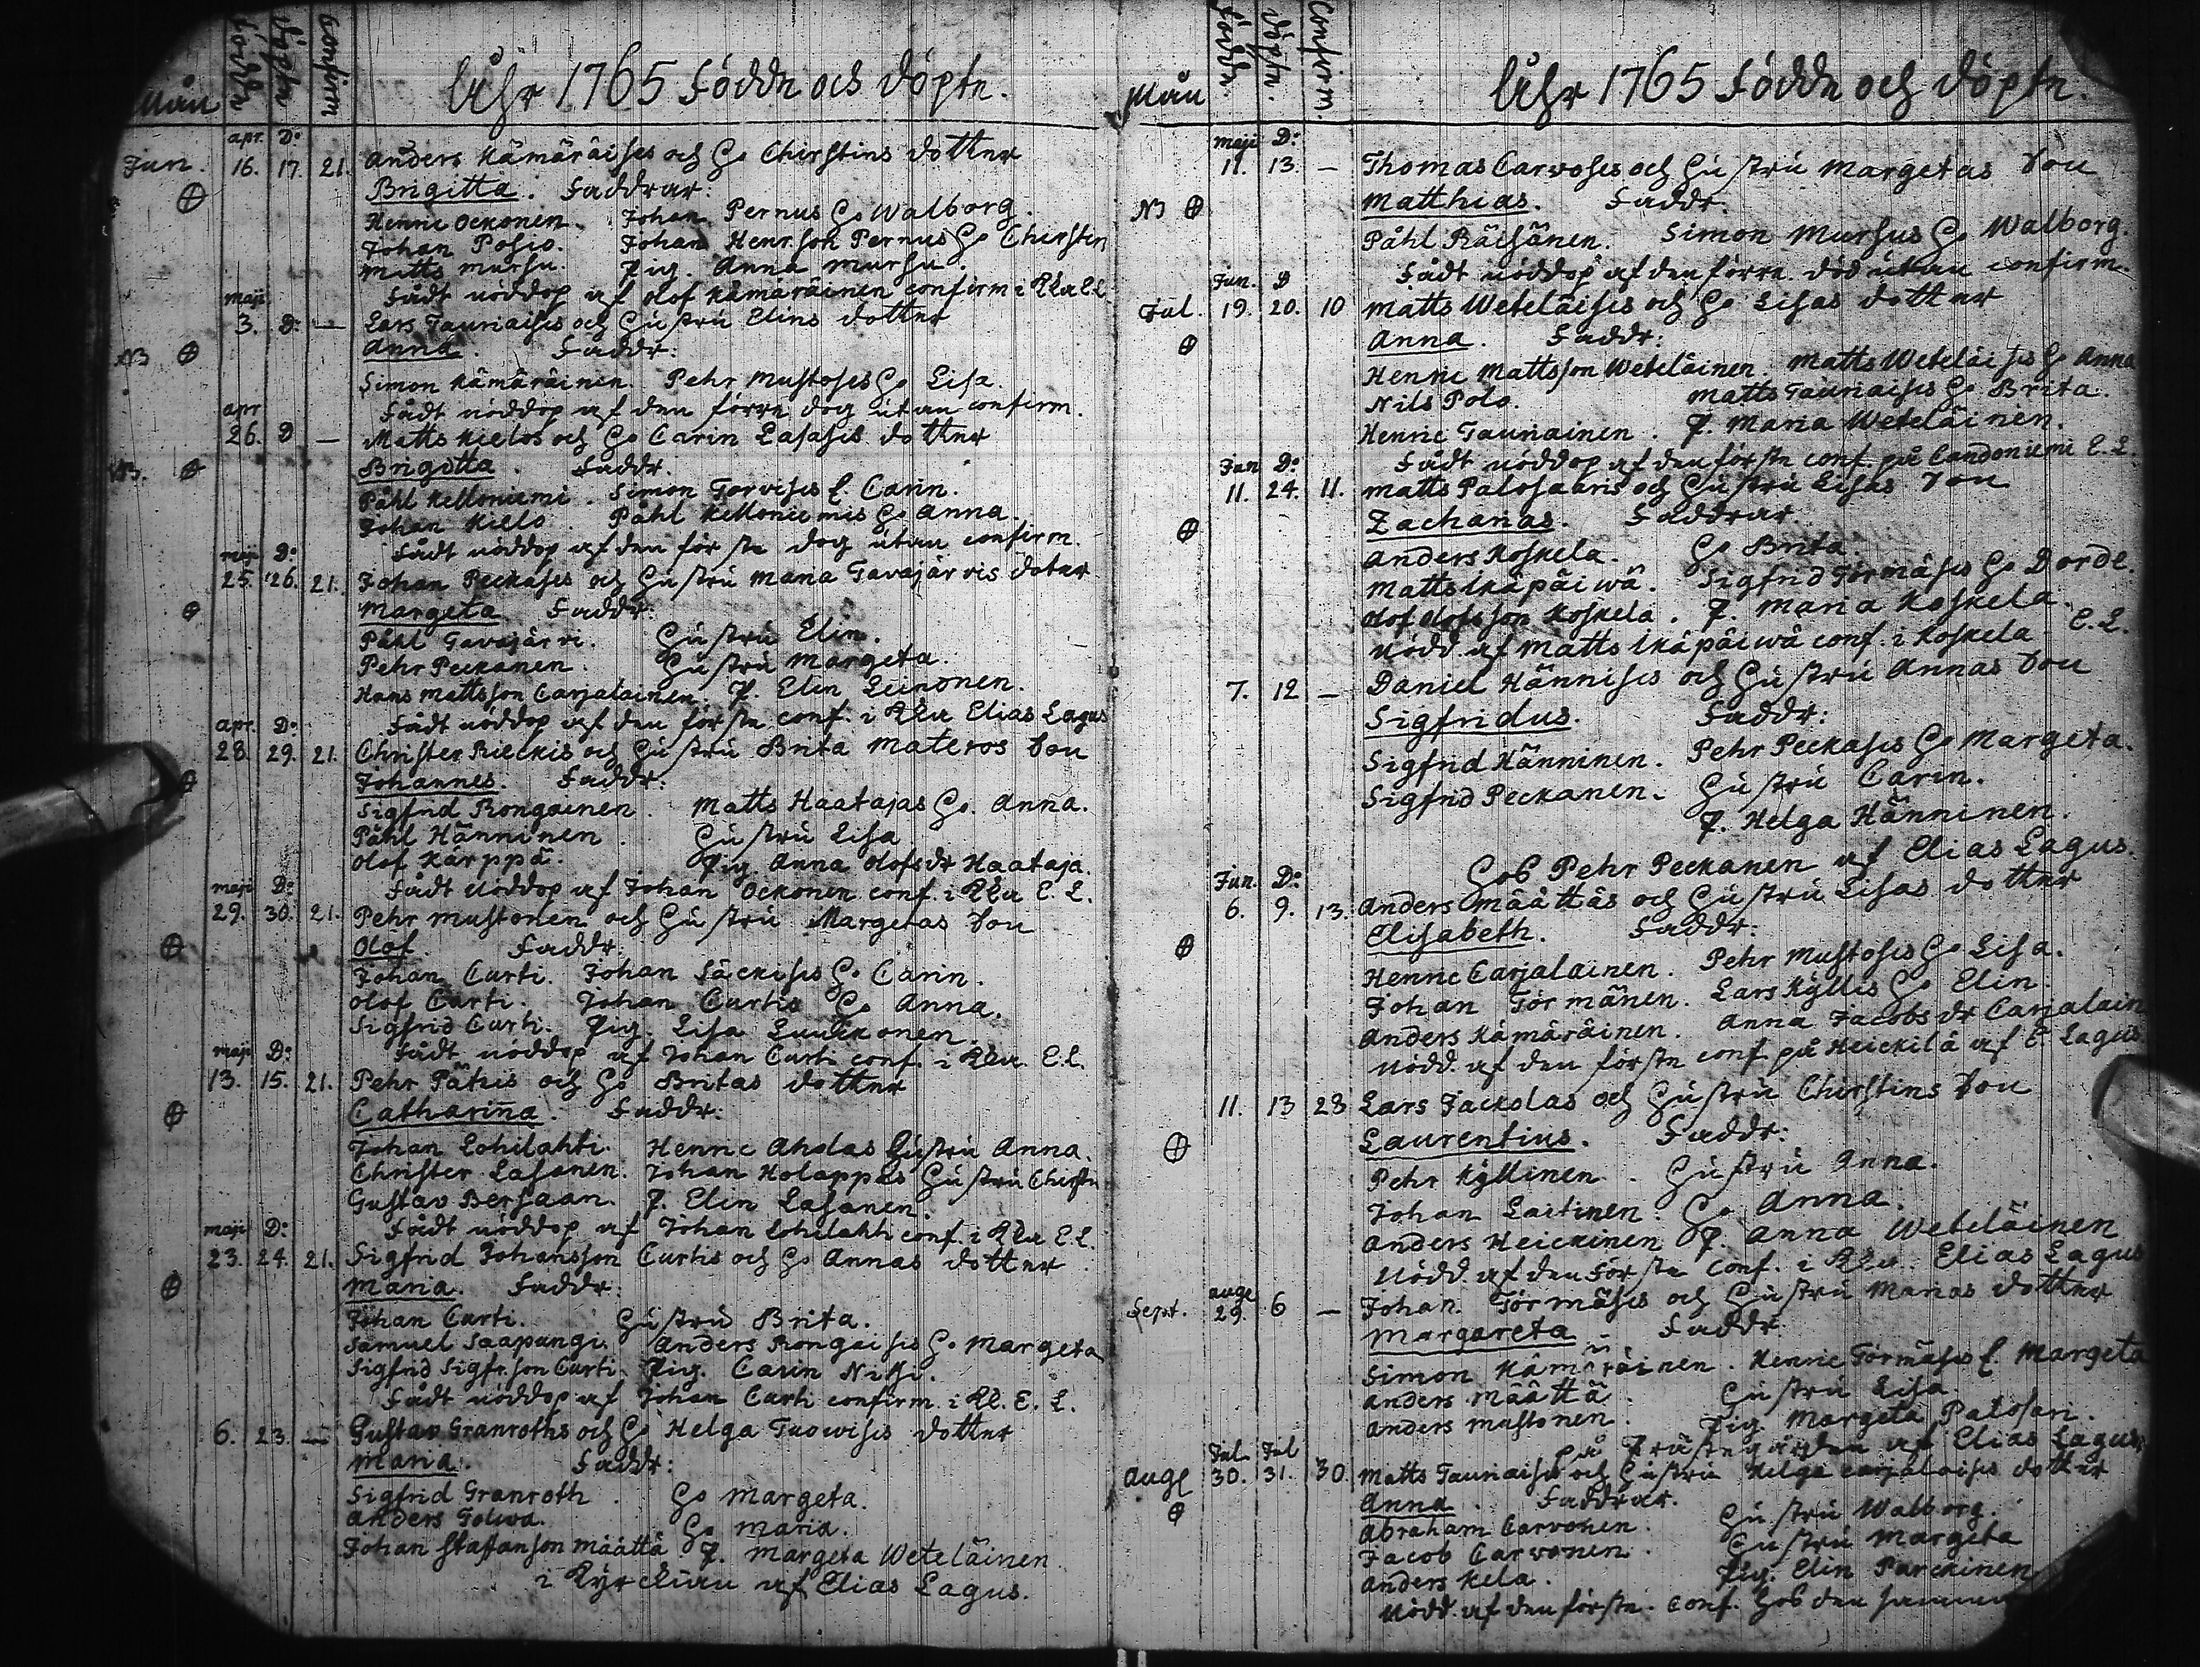 Mån Födde döpte Confirm Åhr 1765 Födde och döpte.
apr. D:o
Jun. 16. 17. 21. Anders Kämäräises och H:o Chirstins dotter
Brigitta. Faddrar:
Henric Ockonen. Johan Pernus H:o Walborg.
Johan Posio. Johan Henr.son Pernus H:o Chirstin
Matts Mursu. Pig. Anna Mursu.
Fådt nöddop af Olof Kämäräinen confirm i Kku E.L.
maji
3. D:o — Lars Tauriaises och Hustru Elins dotter
NB Anna. Faddr:
Simon Kämäräinen. Pehr Mustoses H:o Lisa.
Fådt nöddop af den förre dog utan confirm.
apr
26. D — Matts Kielos och H:o Carin Lasases dotter
NB. Brigitta. Faddr.
Påhl Kelloniemi. Simon Torvises E. Carin.
Johan Kielo. Påhl Kelloniemis H:o Anna.
Fådt nöddop af den förste dog utan confirm.
maji D:o
25. 26. 21. Johan Peckases och Hustru Maria Tavajärvis doter
Margeta Faddr:
Påhl Tavajärvi. Hustru Elin.
Pehr Peckanen. Hustru Margeta.
Hans Mattsson Carjalainen. P. Elin Leinonen.
Fådt nöddop af den förste conf. i Kku Elias Lagus
apr. D:o
28. 29. 21. Christer Rieckis och Hustru Brita Materos Son
Johannes. Faddr:
Sigfrid Rongainen. Matts Haatajas H:o Anna.
Påhl Hänninen. Hustru Lisa
Olof Karppa. Pig. Anna Olofsdr Haataja.
Fådt nöddop af Johan Ockonen conf. i Kku E.L.
maji D:o
29. 30. 21. Pehr Mustonen och Hustru Margetas Son
Olof. Faddr:
Johan Curti. Johan Säckises H:o Carin.
Olof Curti. Johan Curtis H:o Anna.
Sigfrid Curti. Pig. Lisa Luukonen.
Fådt nöddop af Johan Curti conf. i Kku E.L.
maji D:o
13. 15. 21. Pehr Pätsis och H:o Britas dotter
Catharina. Faddr:
Johan Lohilahti. Henric Aholas Hustru Anna.
Christer Lasanen. Johan Holappas Hustru Chirstin
Gustav Bersaan. P. Elin Lasanen.
Fådt nöddop af Johan Lohilahti conf. i Kku E.L.
maji D:o
23. 24. 21. Sigfrid Johansson Curtis och H:o Annas dotter
Maria. Faddr:
Johan Curti. Hustru Brita.
Samuel Saapungi. Anders Rongaises H:o Margeta
Sigfrid Sigfr.son Curti. Pig. Carin Niksi.
Fådt nöddop af Johan Curti confirm. i Kk. E.L.
6. 23. — Gustav Granroths och H:o Helga Tuowises dotter
Maria. Faddr:
Sigfrid Granroth. H:o Margeta.
Anders Tolwa. H:o Maria.
Johan Staffanson Määttä. P. Margeta Weteläinen.
i Kyrckian af Elias Lagus.
Mån Födde. döpte. Confirm. Åhr 1765 Födde och döpte.
maji D:o
11. 13. — Thomas Carvoses och Hustru Margetas Son
NB Matthias. Faddr.
Påhl Räisänen. Simon Mursus H:o Walborg.
Fådt nöddop af den förre död utan confirm.
Jun. D
Jul. 19. 20. 10 Matts Weteläises och H:o Lisas dotter
Anna. Faddr:
Henric Mattsson Weteläinen. Matts Weteläises H:o Anna
Nils Polo. Matts Tauriaises H:o Brita.
Henric Tauriainen. P. Maria Weteläinen.
Fådt nöddop af den förste conf. på Candoniemi E.L.
Jun D:o
11. 24. 11. Matts Palosaaris och Hustru Lisas Son
Zacharias. Faddrar
Anders Koskela. H:o Brita.
Matts Ikäpäiwä. Sigfrid Törmäses H:o Borde.
Olof Olofsson Koskela. P. Maria Koskela.
Nödd. af Matts Ikäpäiwä conf. i Koskela E.L.
7. 12 — Daniel Hännises och Hustru Annas Son
Sigfridus. Faddr:
Sigfrid Hänninen. Pehr Peckases H:o Margeta.
Sigfrid Peckanen. Hustru Carin.
P. Helga Hänninen.
Hos Pehr Peckanen af Elias Lagus.
Jun. D:o
6. 9. 13. Anders Määttäs och Hustru Lisas dotter
Elisabeth. Faddr:
Henric Carjalainen. Pehr Mustoses H:o Lisa.
Johan Törmänen. Lars Kyllis H:o Elin.
Anders Kämäräinen. Anna Jacobs dr Carjalain
Nödd. af den förste conf på Heickilä af E. Lagus
11. 13 23 Lars Jackolas och Hustru Chirstins Son
Laurentius. Faddr:
Pehr Kyllinen. Hustru Anna.
Johan Laitinen. H:o Anna.
Anders Heickinen P. Anna Weteläinen
Nödd. af den förste conf. i Kku. Elias Lagus
aug
Sept. 29. 6 — Johan Törmäses och Hustru Marias dotter
Margareta. Faddr
Simon Kämäräinen. Henric Törmäses E. Margeta
Anders Määttä. Hustru Lisa.
Anders Mustonen. Pig Margeta Palosari.
på Prästegården af Elias Lagus
Jul. Jul
aug 30. 31. 30. Matts Tauriaises och Hustru Helga Carjalaises dotter
Anna. Faddrar.
Abraham Carvonen. Hustru Walborg.
Jacob Carvonen. Hustru Margeta
Anders Kela. Pig. Elin Parckinen
Nödd. af den förste. conf. hos den samme